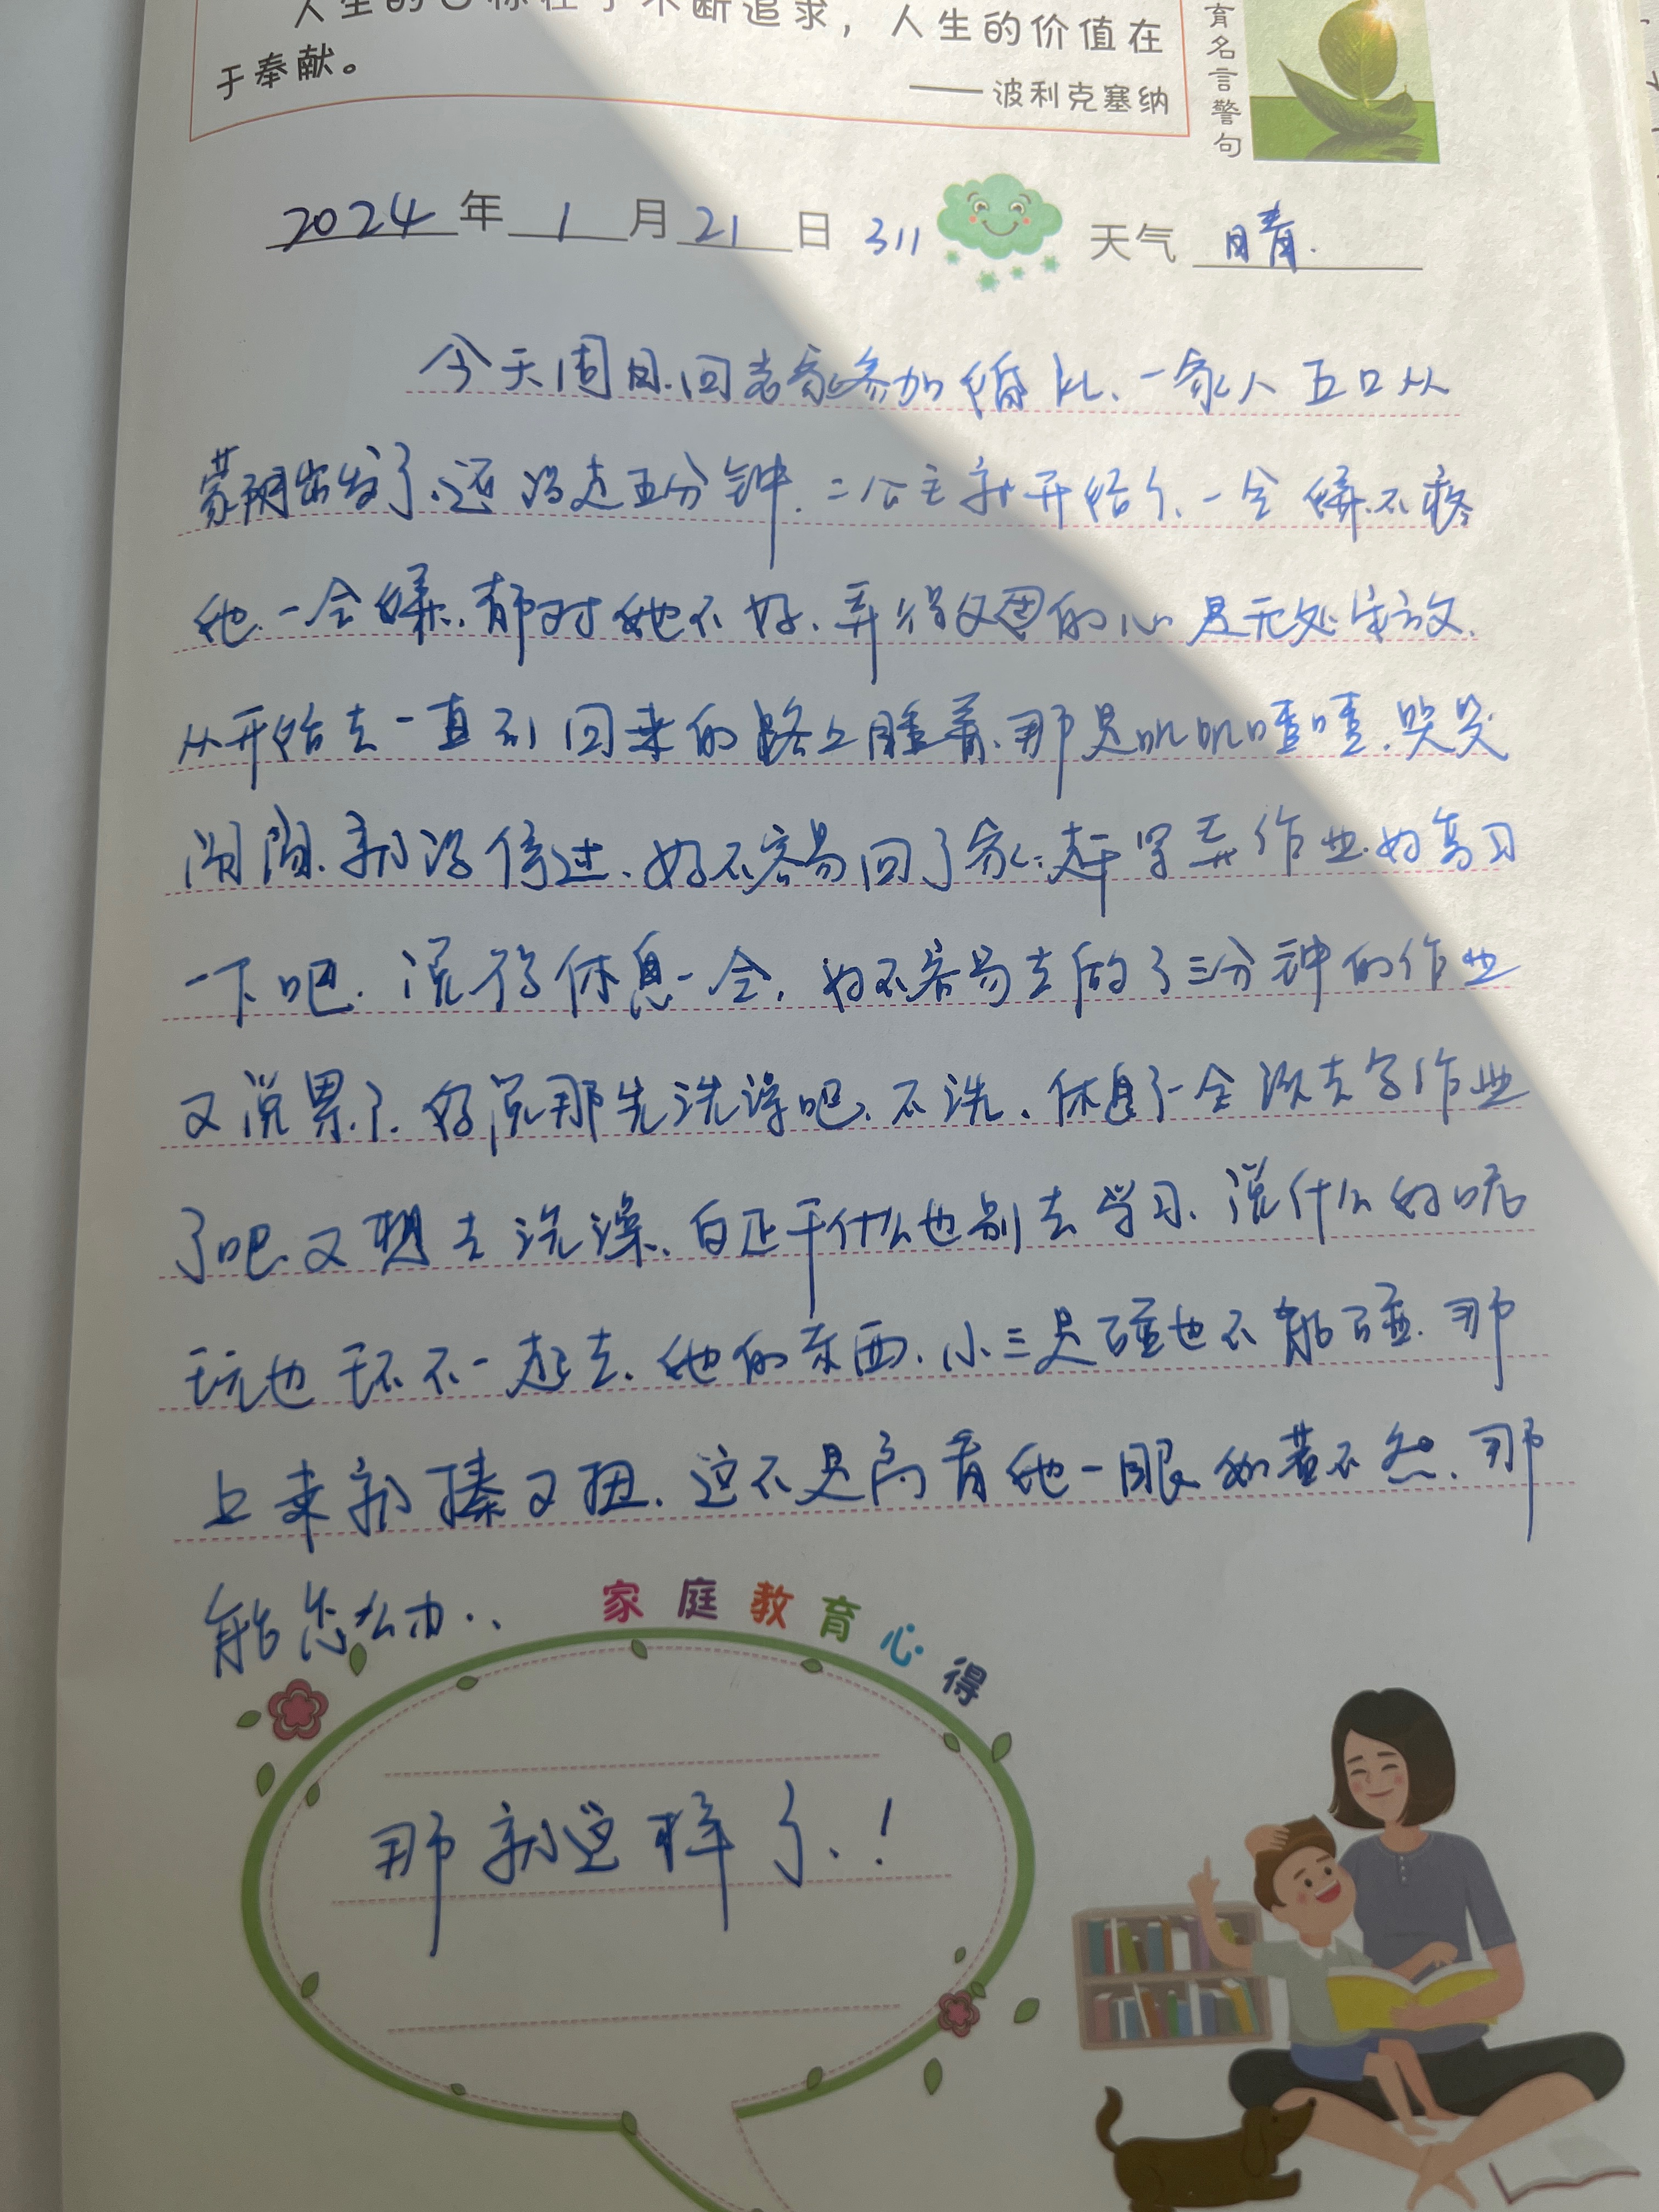 人生的目标在于不断追求，人生的价值在
于奉献。
——波利克塞纳
育名言警句
2024年1月21日 311 天气 晴.
今天周日.回老家参加婚礼、一家人五口从
蒙阴出发了.还没走五分钟.二公主就开始了、一会嫌不疼
她.一会嫌.都对她不好.弄得父母的心是无处安放.
从开始去一直到回来的路上睡着.那是叽叽喳喳.哭哭
闹闹.就没停过.好不容易回了家.赶紧弄作业.好复习
一下吧.说得休息一会.好不容易去做了三分钟的作业
又说累了.好说那先洗澡吧、不洗、休息了一会该去写作业
了吧.又想去洗澡.白正干什么也别去学习.说什么的呢
玩也玩不一起去.她的东西.小三是碰也不能碰.那
上来就揍又扭.这不是高看她一眼 如若不然.那
能怎么办..
家庭教育心得
那就这样了.！